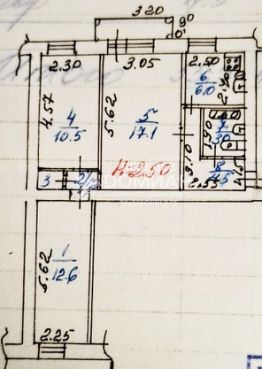 3.20
90
2.30
3.05
2.50
6
6.0
4.57
5.62
4
10.5
5
17.1
7
3.0
3.10
3
2
H=2.50
8
2.55
1
12.6
5.62
2.25